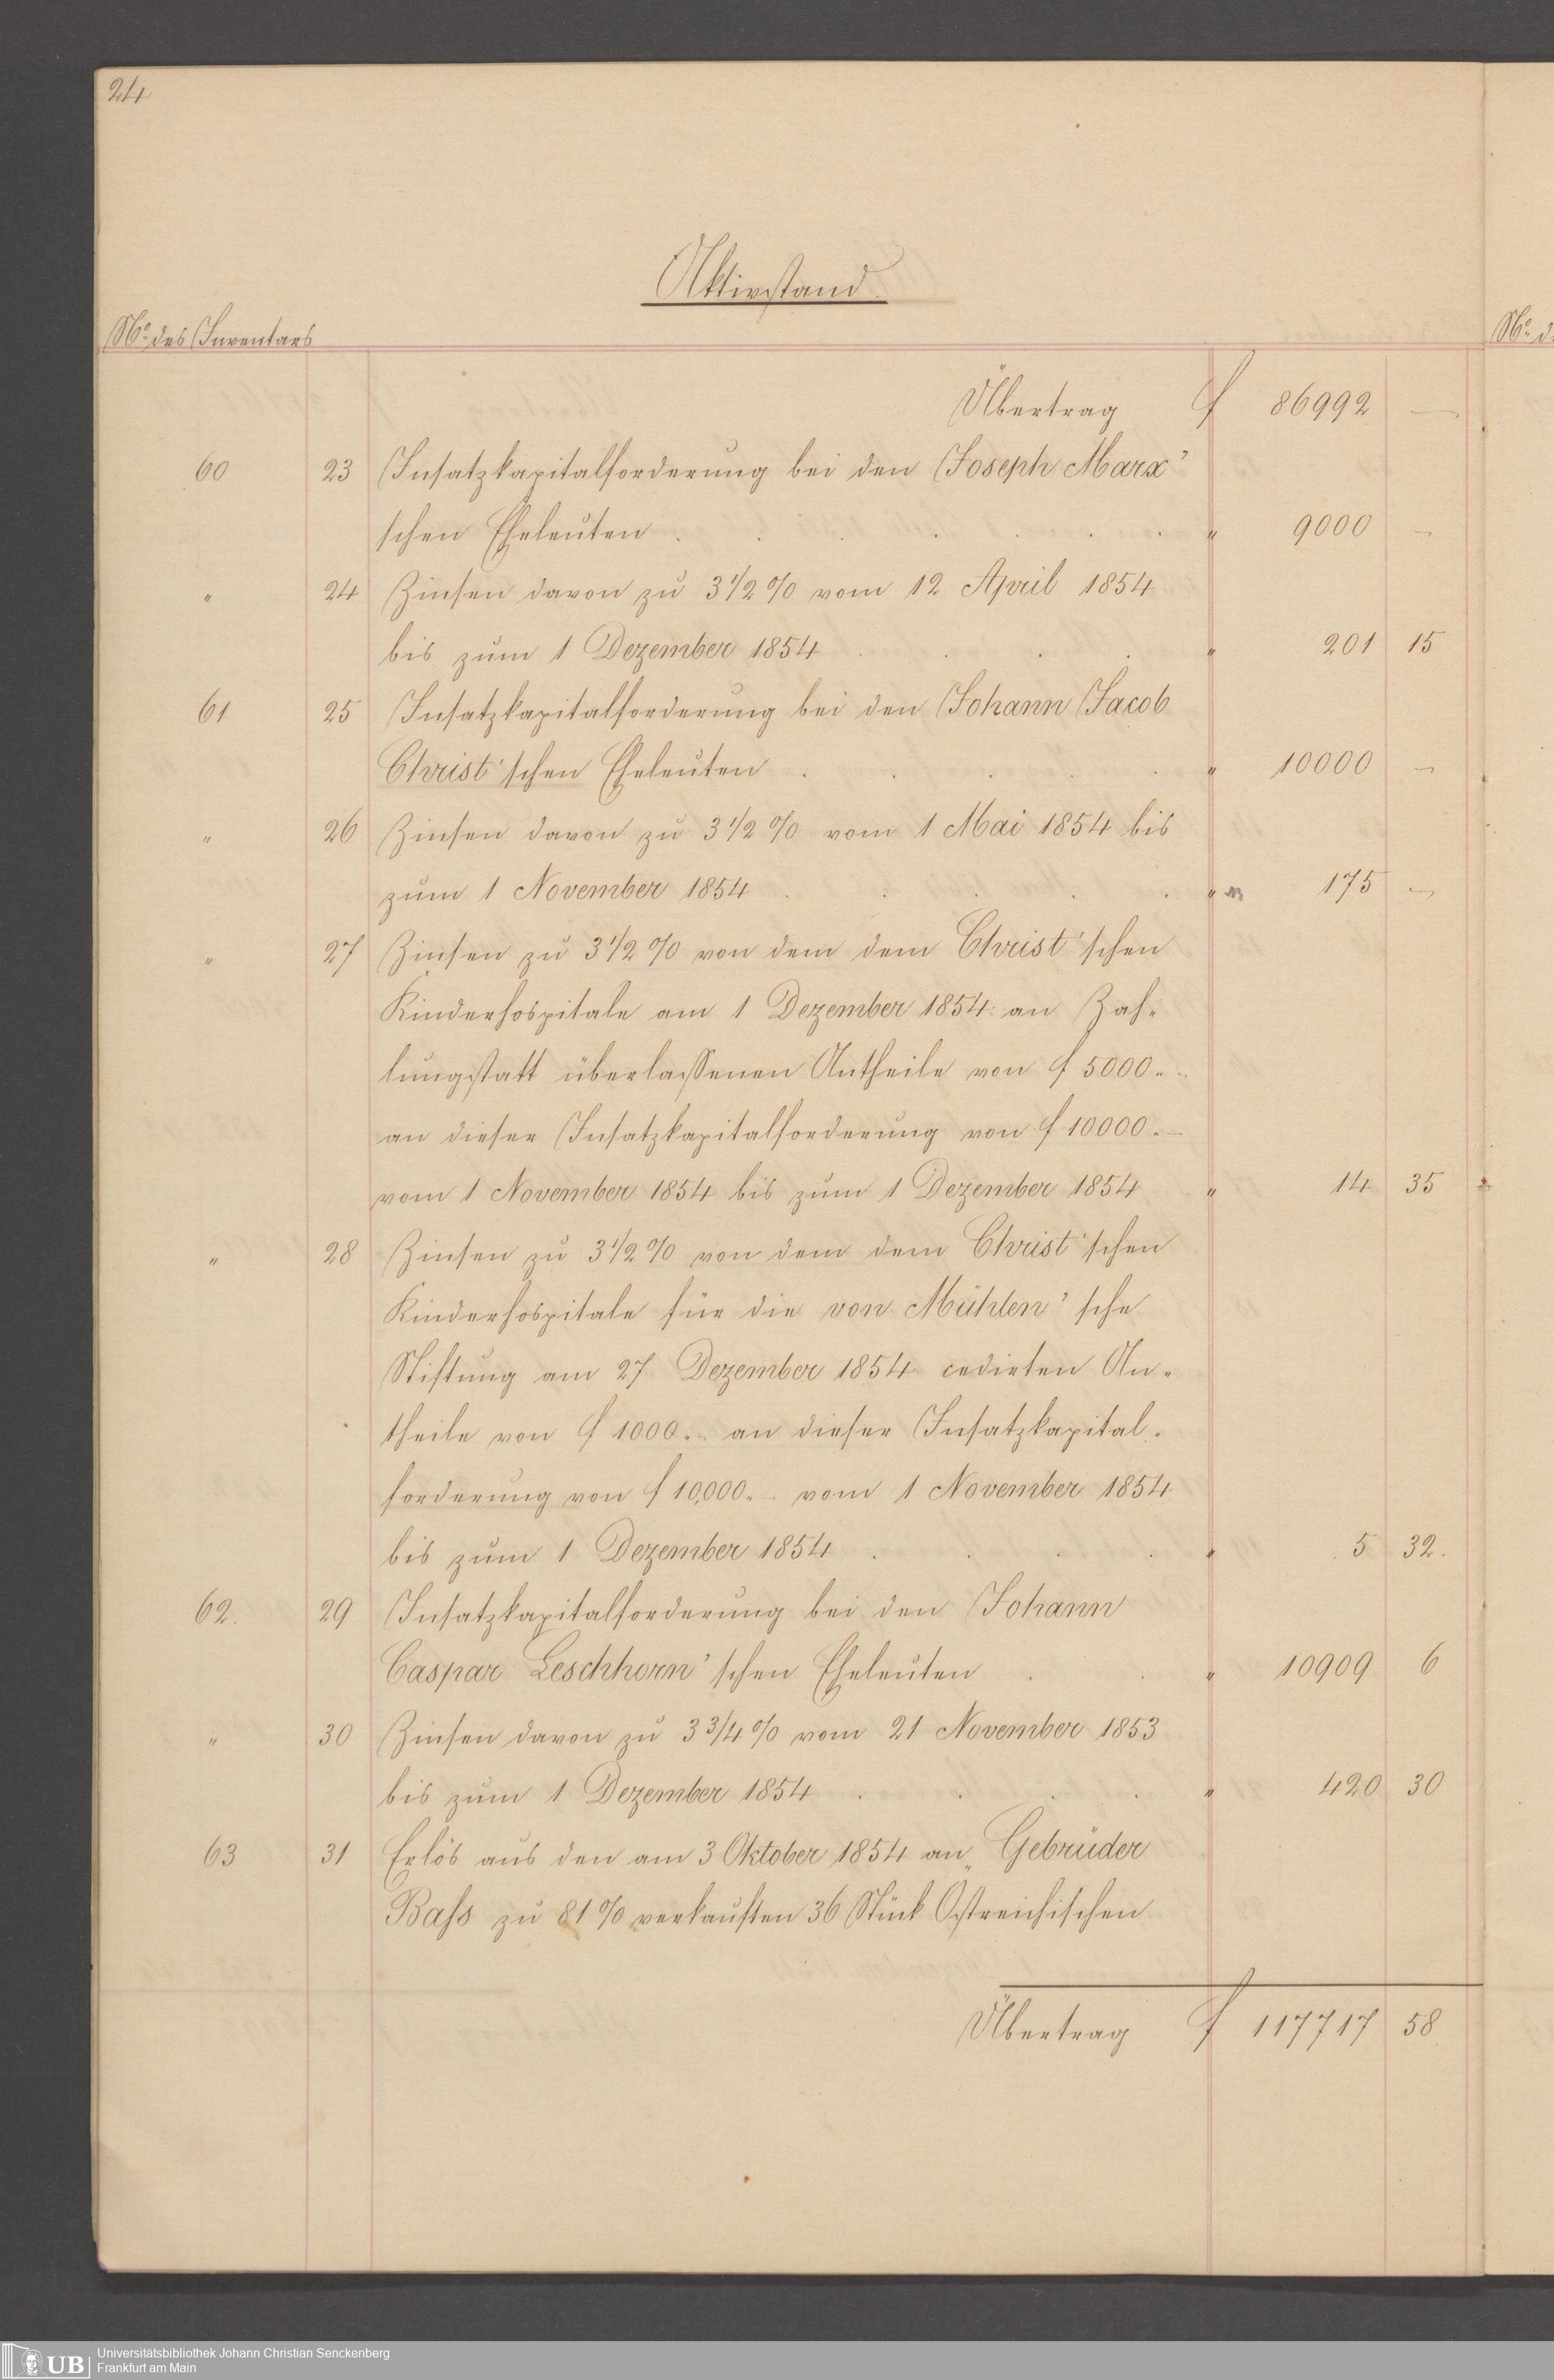 24
Aktivstand.
No. des Inventars
Übertrag f 86992 —
60 23 Insatzkapitalforderung bei den Joseph Marx'
schen Eheleuten . . . . . . . " 9000 —
" 24 Zinsen davon zu 3 1/2 % vom 12 April 1854
bis zum 1 Dezember 1854 . . . . " 201 15
61 25 Insatzkapitalforderung bei den Johann Jacob
Christ'schen Eheleuten . . . . . " 10000 —
" 26 Zinsen davon zu 3 1/2 % vom 1 Mai 1854 bis
zum 1 November 1854 . . . . . " 175 —
" 27 Zinsen zu 3 1/2 % von dem dem Christ'schen
Kinderhospitale am 1 Dezember 1854 an Zah-
lungstatt überlassenen Antheile von f 5000.-
an dieser Insatzkapitalforderung von f 10000.-
vom 1 November 1854 bis zum 1 Dezember 1854 " 14 35
" 28 Zinsen zu 3 1/2 % von dem dem Christ'schen
Kinderhospitale für die von Mühlen'sche
Stiftung am 27 Dezember 1854 cedirten An-
theile von f 1000.- an dieser Insatzkapital-
forderung von f 10,000.- vom 1 November 1854
bis zum 1 Dezember 1854 . . . . " 5 32.
62. 29 Insatzkapitalforderung bei den Johann
Caspar Leschhorn'schen Eheleuten . . " 10909 6
" 30 Zinsen davon zu 3 3/4 % vom 21 November 1853
bis zum 1 Dezember 1854 . . . . " 420 30
63 31 Erlös aus den am 3 Oktober 1854 an Gebrüder
Bass zu 81 % verkauften 36 Stück Östreichischen
Übertrag f 117717 58
No. d
UB Universitätsbibliothek Johann Christian Senckenberg
Frankfurt am Main